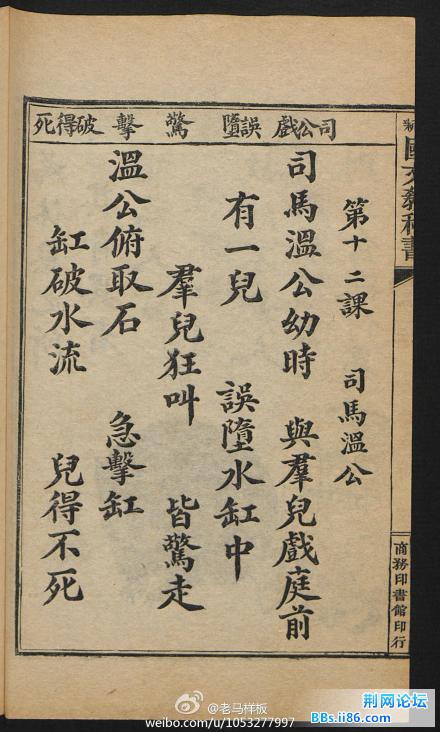 國文教科書
商務印書館印行
司公戲誤墮驚擊破得死
第十二課 司馬溫公
司馬溫公幼時 與羣兒戲庭前
有一兒 誤墮水缸中
羣兒狂叫 皆驚走
溫公俯取石 急擊缸
缸破水流 兒得不死
@老马样板
weibo.com/u/1053277997
荆网论坛
BBs.ii86.com